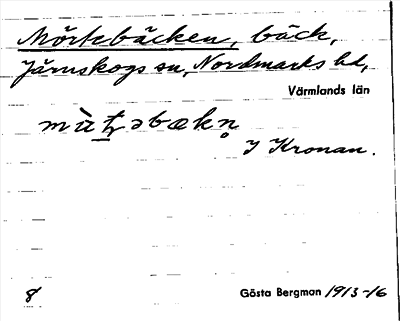 Mörtebäcken, bäck,
Järnskogs sn, Nordmarks hd,
Värmlands län
I Kronan.
8
Gösta Bergman 1913-16